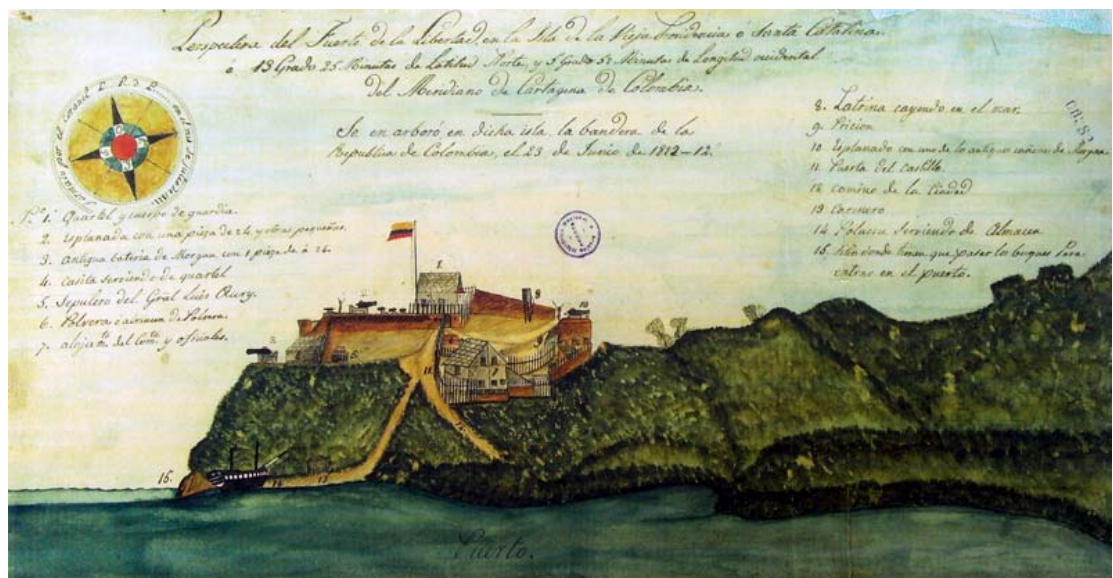 Perspectiva del Fuerte de la Libertad, en la Isla de la Vieja Providencia o Santa Catalina.
á 13 Grado 25 Minutos de Latitud Norte, y 5 Grado 5 Minutos de Longitud occidental
del Meridiano de Cartagena de Colombia.
Se en arboró en dicha isla la bandera de la
Republica de Colombia, el 23 de Junio de 1822-12.
por el Coronel
Nº 1. Quartel y cuerpo de guardia.
2. Esplanada con una pieza de 24 y otras pequeñas.
3. Antigua bateria de Morgan con 1 pieza de à 24.
4. casita serviendo de quartel
5. Sepulcro del Gral Luis Aury.
6. Polvera ó almacen de Polvora.
7. alojamto del Comte y oficiales.
8. Latrina cayendo en el mar.
9. Pricion
10. Esplanado con uno de lo antiguo cañone de Morgan
11. Puerta del castillo.
12. camino de la Ciudad
13. Carenero
14. Polacra serviendo de Almacen
15. sitio donde tienen que pasar los buques para
entrar en el puerto.
1.
3.
7
9
10
11
12
13
14
15.
Puerto.